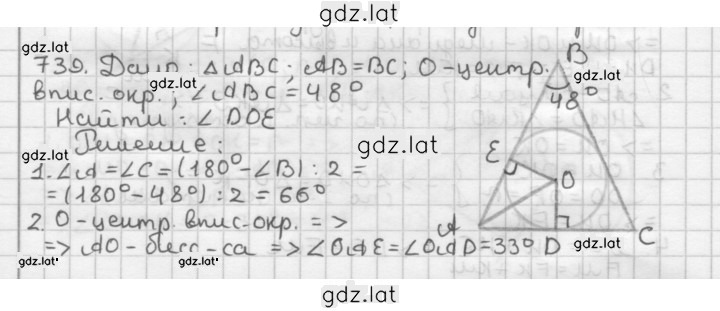 gdz.lat
gdz.lat
739. Дано: △ABC; AB=BC; O-центр.
gdz.lat
впис. окр.; ∠ABC = 48°
Найти: ∠DOE
Решение:
gdz.lat
1. ∠A = ∠C = (180° - ∠B) : 2 =
= (180° - 48°) : 2 = 66°
2. O - центр. впис. окр. = >
=> AO - бисс-са => ∠OAE = ∠OAD = 33°
gdz.lat
B
gdz.lat
48°
gdz.lat
E
O
A
D
gdz.lat
C
gdz.lat
gdz.lat